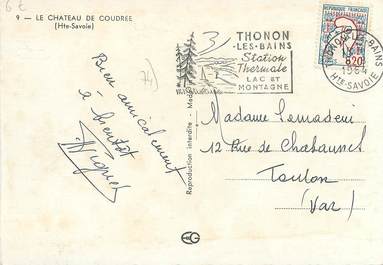 6 €
9 - LE CHATEAU DE COUDRÉE
(Hte-Savoie)
74)
THONON
-LES-BAINS
Station
Thermale
LAC ET
MONTAGNE
THONON-LES-BAINS
1964
Hte-SAVOIE
REPUBLIQUE FRANÇAISE
0,20
Bien amicalement
à bientôt
Reproduction interdite -
Madame Lemadeni
12 Rue de Chabannes
Toulon
(Var)